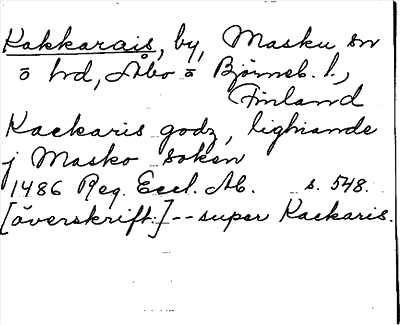 Kakkarais, by, Masku sn
o hd, Åbo o Björneb. l.,
Finland
Kackaris godz, lighiande
j Masko soken
1486 Reg. Eccl. Ab. s. 548.
[överskrift:]--super Kackaris.